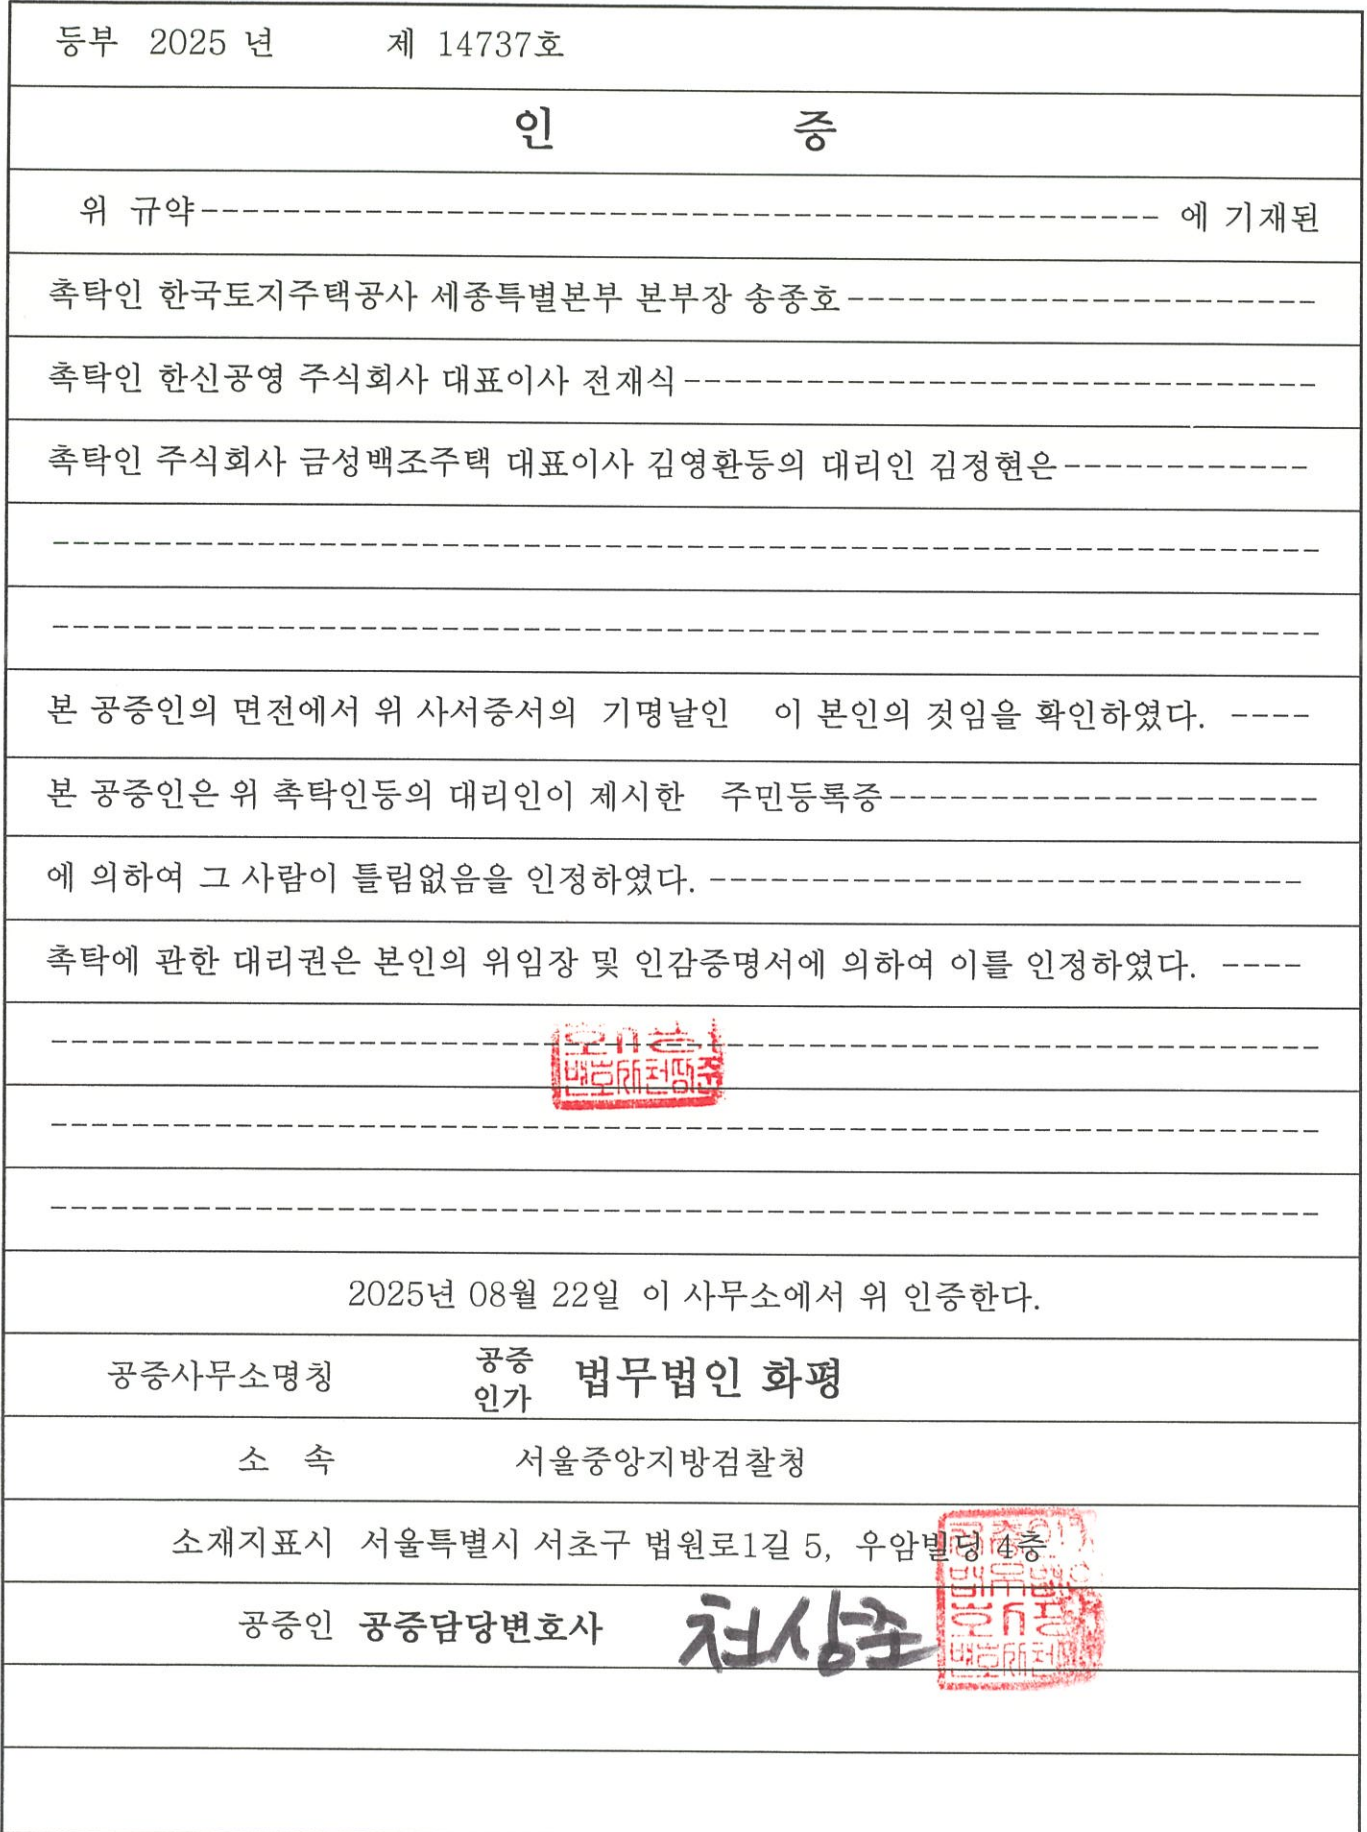 등부 2025 년 제 14737호
인 증
위 규약----------------------------------------------- 에 기재된
촉탁인 한국토지주택공사 세종특별본부 본부장 송종호-----------------------
촉탁인 한신공영 주식회사 대표이사 전재식-------------------------------
촉탁인 주식회사 금성백조주택 대표이사 김영환등의 대리인 김정현은------------
--------------------------------------------------------------
--------------------------------------------------------------
본 공증인의 면전에서 위 사서증서의 기명날인 이 본인의 것임을 확인하였다. ----
본 공증인은 위 촉탁인등의 대리인이 제시한 주민등록증---------------------
에 의하여 그 사람이 틀림없음을 인정하였다. -----------------------------
촉탁에 관한 대리권은 본인의 위임장 및 인감증명서에 의하여 이를 인정하였다. ----
--------------------------------------------------------------
--------------------------------------------------------------
--------------------------------------------------------------
2025년 08월 22일 이 사무소에서 위 인증한다.
공증사무소명칭 공증인가 법무법인 화평
소 속 서울중앙지방검찰청
소재지표시 서울특별시 서초구 법원로1길 5, 우암빌딩 4층
공증인 공증담당변호사 천상준